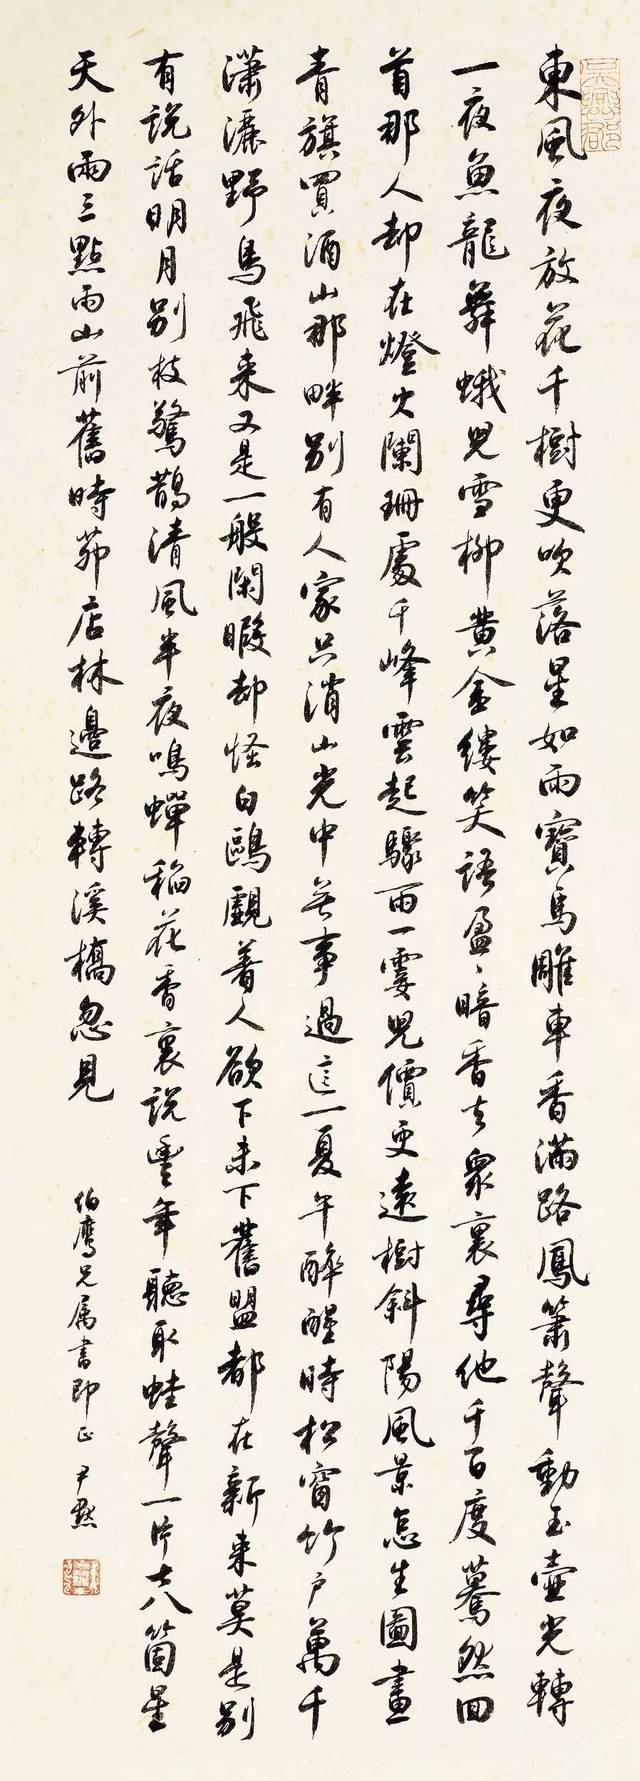 東風夜放花千樹更吹落星如雨寶馬雕車香滿路鳳簫聲動玉壺光轉
一夜魚龍舞蛾兒雪柳黃金縷笑語盈〻暗香去衆裏尋他千百度驀然回
首那人却在燈火闌珊處千峰雲起驟雨一霎兒價更遠樹斜陽風景怎生圖畫
青旗買酒山那畔別有人家只消山光中無事過這一夏午醉醒時松窗竹戶萬千
瀟灑野鳥飛來又是一般閑暇却怪白鷗覷着人欲下未下舊盟都在新來莫是別
有說話明月別枝驚鵲清風半夜鳴蟬稻花香裏說豐年聽取蛙聲一片七八箇星
天外兩三點雨山前舊時茆店林邊路轉溪橋忽見
伯鷹兄属書即正 尹默